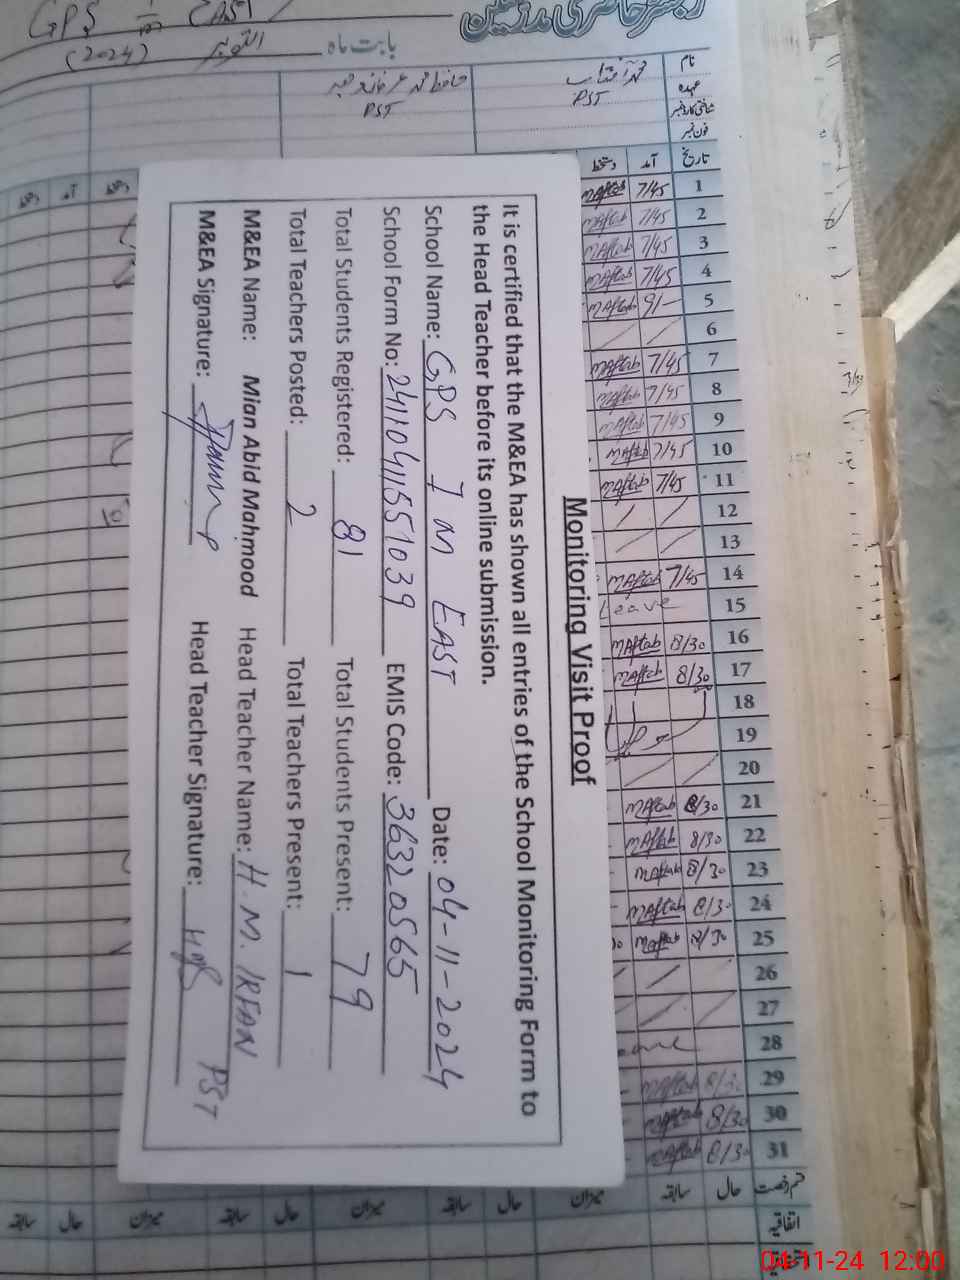 GPS EAST
(2024)
بابت ماہ
رجسٹر حاضری مدرسین
نام
عہدہ
شناختی کارڈ نمبر
فون نمبر
PST
PST
تاریخ آمد دستخط
آمد دستخط
دستخط
1 7/45 MAftab
2 7/45 MAftab
3 7/45 MAftab
4 7/45 MAftab
5 9/- MAftab
6
7 7/45 MAftab
8 7/45 MAftab
9 7/45 MAftab
10 7/45 MAftab
11 7/45 MAftab
12
13
14 7/45 MAftab
15 Leave
16 8/30 MAftab
17 8/30 MAftab
18
19
20
21 8/30 MAftab
22 8/30 MAftab
23 8/30 MAftab
24 8/30 MAftab
25 8/30 MAftab
26
27
28
29 8/30 MAftab
30 8/30 MAftab
31 8/30 MAftab
قسم رخصت حال سابقہ میزان حال سابقہ میزان حال سابقہ میزان حال سابقہ
اتفاقیہ
Monitoring Visit Proof
It is certified that the M&EA has shown all entries of the School Monitoring Form to
the Head Teacher before its online submission.
School Name: GPS I M EAST Date: 04-11-2024
School Form No: 241104115551039 EMIS Code: 36320565
Total Students Registered: 81 Total Students Present: 79
Total Teachers Posted: 2 Total Teachers Present: 1
M&EA Name: Mian Abid Mahmood Head Teacher Name: H.M. IRFAN
M&EA Signature: Head Teacher Signature: PST
04-11-24 12:00